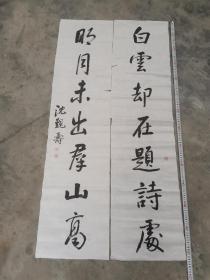 白雲却在題詩處
明月未出羣山高
沈覲壽